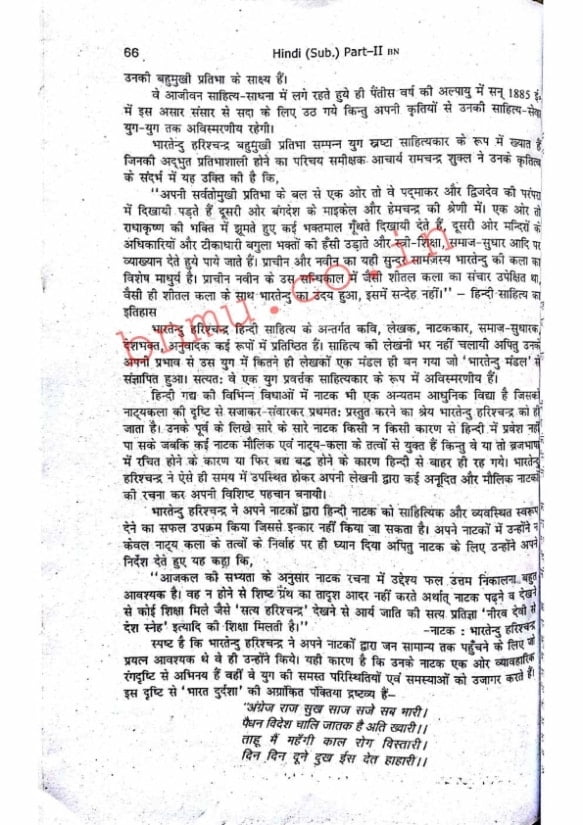 66
Hindi (Sub.) Part–II BN
उनकी बहुमुखी प्रतिभा के साक्ष्य हैं।
वे आजीवन साहित्य-साधना में लगे रहते हुये ही पैंतीस वर्ष की अल्पायु में सन् 1885 ई.
में इस असार संसार से सदा के लिए उठ गये किन्तु अपनी कृतियों से उनकी साहित्य-सेवा
युग-युग तक अविस्मरणीय रहेगी।
भारतेन्दु हरिश्चन्द्र बहुमुखी प्रतिभा सम्पन्न युग स्रष्टा साहित्यकार के रूप में ख्यात हैं,
जिनकी अद्भुत प्रतिभाशाली होने का परिचय समीक्षक आचार्य रामचन्द्र शुक्ल ने उनके कृतित्व
के संदर्भ में यह उक्ति की है कि,
"अपनी सर्वतोमुखी प्रतिभा के बल से एक ओर तो वे पद्माकर और द्विजदेव की परंपरा
में दिखायी पड़ते हैं दूसरी ओर बंगदेश के माइकेल और हेमचन्द्र की श्रेणी में। एक ओर तो
राधाकृष्ण की भक्ति में झूमते हुए कई भक्तमाल गूँथते दिखायी देते हैं, दूसरी ओर मन्दिरों के
अधिकारियों और टीकाधारी बगुला भक्तों की हँसी उड़ाते और स्त्री-शिक्षा, समाज-सुधार आदि पर
व्याख्यान देते हुये पाये जाते हैं। प्राचीन और नवीन का यही सुन्दर सामंजस्य भारतेन्दु की कला का
विशेष माधुर्य है। प्राचीन नवीन के उस सन्धिकाल में जैसी शीतल कला का संचार उपेक्षित था,
वैसी ही शीतल कला के साथ भारतेन्दु का उदय हुआ, इसमें सन्देह नहीं।" – हिन्दी साहित्य का
इतिहास
भारतेन्दु हरिश्चन्द्र हिन्दी साहित्य के अन्तर्गत कवि, लेखक, नाटककार, समाज-सुधारक,
देशभक्त, अनुवादक कई रूपों में प्रतिष्ठित हैं। साहित्य की लेखनी भर नहीं चलायी अपितु उनके
अपनी प्रभाव से उस युग में कितने ही लेखकों एक मंडल ही बन गया जो 'भारतेन्दु मंडल' से
संज्ञापित हुआ। सत्यतः वे एक युग प्रवर्त्तक साहित्यकार के रूप में अविस्मरणीय हैं।
हिन्दी गद्य की विभिन्न विधाओं में नाटक भी एक अन्यतम आधुनिक विद्या है जिसको
नाट्यकला की दृष्टि से सजाकर-संवारकर प्रथमतः प्रस्तुत करने का श्रेय भारतेन्दु हरिश्चन्द्र को ही
जाता है। उनके पूर्व के लिखे सारे के सारे नाटक किसी न किसी कारण से हिन्दी में प्रवेश नहीं
पा सके जबकि कई नाटक मौलिक एवं नाट्य-कला के तत्वों से युक्त हैं किन्तु वे या तो ब्रजभाषा
में रचित होने के कारण या फिर बद्य बद्ध होने के कारण हिन्दी से बाहर ही रह गये। भारतेन्दु
हरिश्चन्द्र ने ऐसे ही समय में उपस्थित होकर अपनी लेखनी द्वारा कई अनूदित और मौलिक नाटकों
की रचना कर अपनी विशिष्ट पहचान बनायी।
भारतेन्दु हरिश्चन्द्र ने अपने नाटकों द्वारा हिन्दी नाटक को साहित्यिक और व्यवस्थित स्वरूप
देने का सफल उपक्रम किया जिससे इन्कार नहीं किया जा सकता है। अपने नाटकों में उन्होंने न
केवल नाट्य कला के तत्वों के निर्वाह पर ही ध्यान दिया अपितु नाटक के लिए उन्होंने अपने
निर्देश देते हुए यह कहा कि,
"आजकल की सभ्यता के अनुसार नाटक रचना में उद्देश्य फल उत्तम निकालना बहुत
आवश्यक है। वह न होने से शिष्ट ग्रंथ का तादृश आदर नहीं करते अर्थात् नाटक पढ़ने व देखने
से कोई शिक्षा मिले जैसे 'सत्य हरिश्चन्द्र' देखने से आर्य जाति की सत्य प्रतिज्ञा 'नीरव देवी से
देश स्नेह' इत्यादि की शिक्षा मिलती है।"
–नाटक : भारतेन्दु हरिश्चन्द्र
स्पष्ट है कि भारतेन्दु हरिश्चन्द्र ने अपने नाटकों द्वारा जन सामान्य तक पहुँचने के लिए जो
प्रयत्न आवश्यक थे वे ही उन्होंने किये। यही कारण है कि उनके नाटक एक ओर व्यावहारिक
रंगदृष्टि से अभिनय हैं वहीं वे युग की समस्त परिस्थितियों एवं समस्याओं को उजागर करते हैं।
इस दृष्टि से 'भारत दुर्दशा' की अग्रांकित पंक्तिया द्रष्टव्य हैं–
"अंग्रेज राज सुख साज सजे सब भारी।
पैधन विदेश चालि जातक है अति ख्वारी।।
ताहू मैं महँगी काल रोग विस्तारी।
दिन दिन दूने दुख ईस देत हाहारी।।
bnmu.co.in